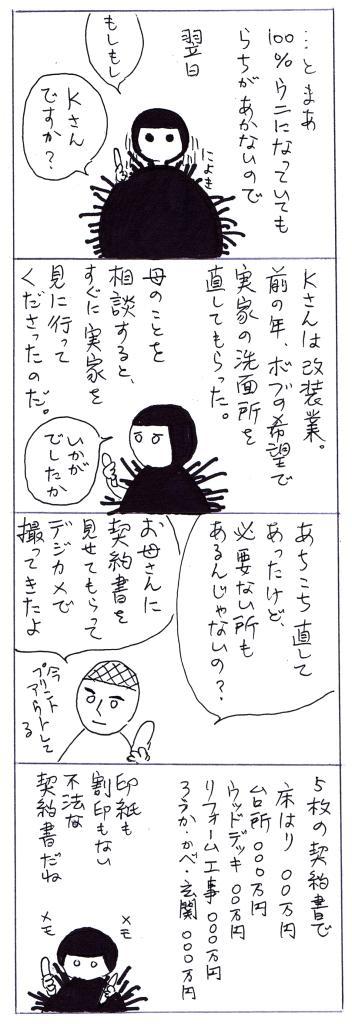 …とまあ
100%ウニになっていても
らちがあかないので
翌日
にょき
もしもし
Kさん
ですか？
Kさんは改装業。
前の年、ボブの希望で
実家の洗面所を
直してもらった。
母のことを
相談すると、
すぐに実家を
見に行って
くださったのだ。
いかが
でしたか
あちこち直して
あったけど、
必要ない所も
あるんじゃないの？
お母さんに
契約書を
見せてもらって
デジカメで
撮ってきたよ
今プリント
アウトして
る
5枚の契約書で
床はり 〇〇万円
台所 〇〇〇万円
ウッドデッキ 〇〇万円
リフォーム工事 〇〇〇万円
ろうか・かべ・玄関 〇〇〇万円
印紙も
割印もない
不法な
契約書だね
メモ
メモ